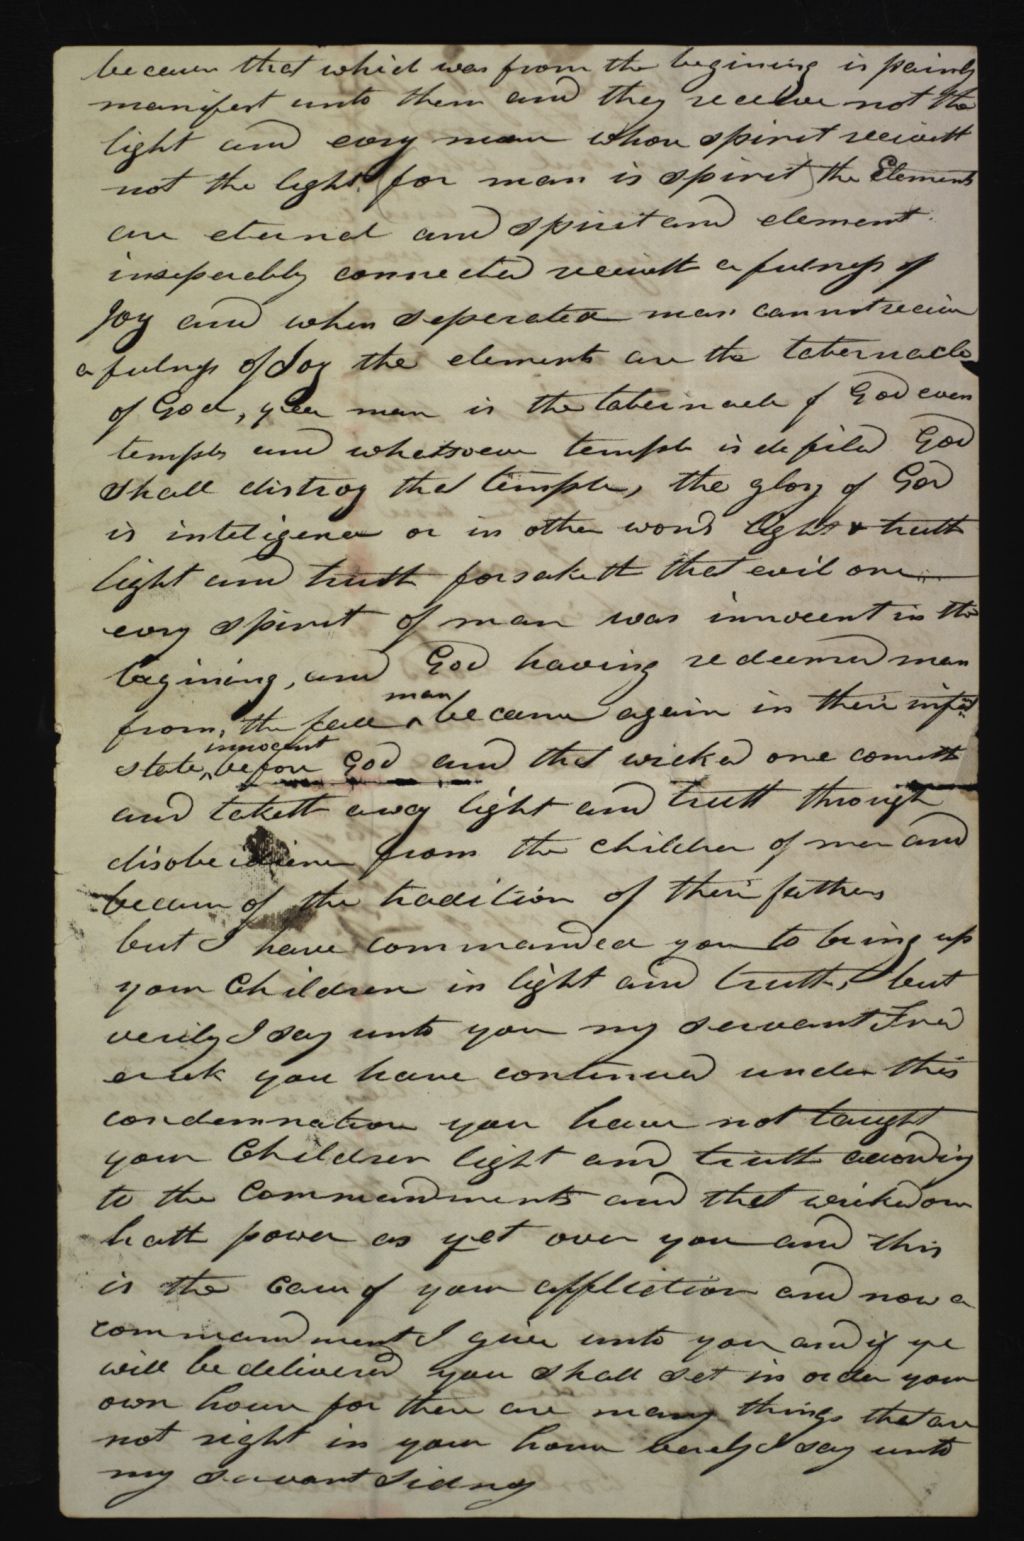 because that which was from the begining is painly
manifest unto them and they receive not the
light and evry man whose spirit receiveth
not the light for man is spirit the Elements
are eternal and spirit and element
inseperably connected receiveth a fulness of
Joy and when seperated man cannot receive
a fulness of Joy the elements are the tabernacle
of God, yea man is the tabernacle of God even
temples and whatsoever temple is defiled God
shall distroy that temple, the glory of God
is inteligence or in other word light & truth
light and truth forsaketh that evil one
evry spirit of man was innocent in the
begining, and God having redeemed man
from, the fall man became again in their infant
state, innocent before God and that wicked one cometh
and taketh away light and truth through
disobedience from the children of men and
because of the tradition of their fathers
but I have commanded you to bring up
your Children in light and truth, but
verily I say unto you my servant Fred
erick you have continued under this
condemnation you have not taught
your Children light and truth according
to the commandments and that wicked one
hath power as yet over you and this
is the cause of your affliction and now a
commandment I give unto you and if ye
will be delivered you shall set in order your
own house for there are many things that are
not right in your house verily I say unto
my servant Sidney